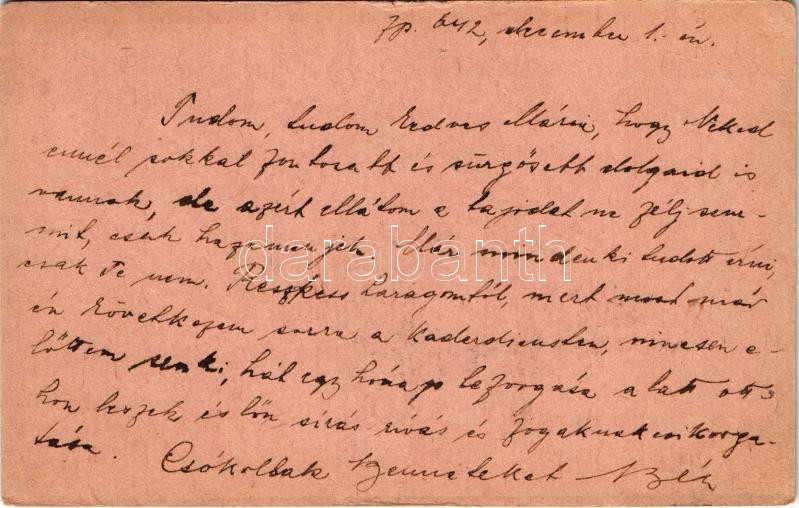 Fp. 642, december 1.-én.
Tudom, tudom kedves Márci, hogy Neked
ennél sokkal fontosabb és sürgősebb dolgaid is
vannak, de azért ellátom a bajodat ne félj sem-
mit, csak hazamenjek. Már mindenki tudott írni,
csak Te nem. Reszkess haragomtól, mert most már
én következem sorra a Kaderdiensten, nincsen e-
lőttem senki, hát egy hónap leforgása alatt ott-
hon leszek és lőn sírás rívás és fogaknak csikorga-
tása.
Csókollak Benneteket
darabanth